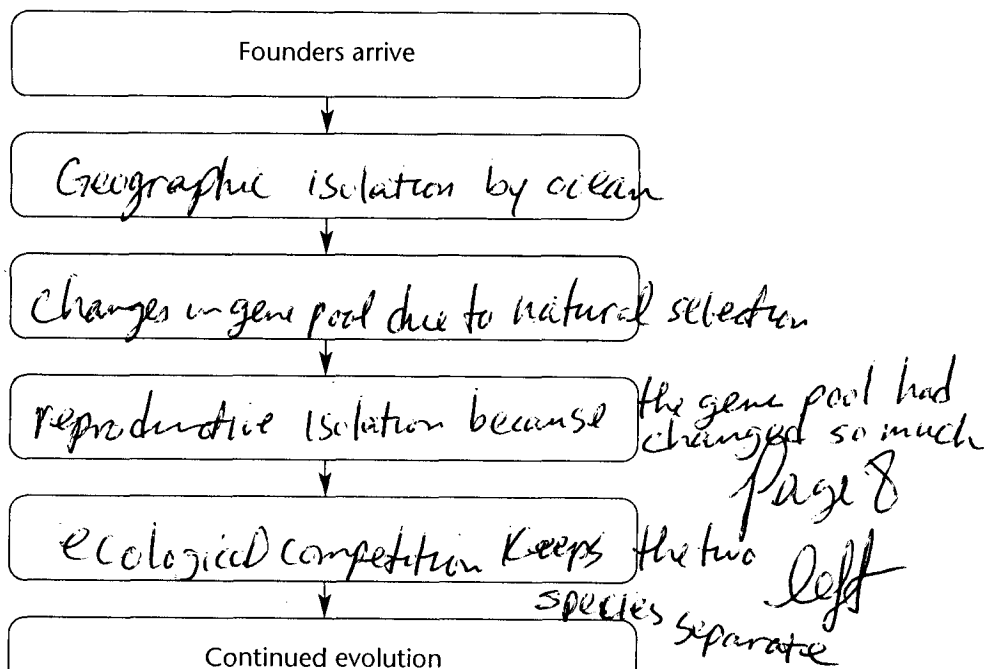 Founders arrive
Geographic isolation by ocean
changes in gene pool due to natural selection
reproductive isolation because the gene pool had
changed so much
Page 8
ecological competition keeps the two
left
species separate
Continued evolution